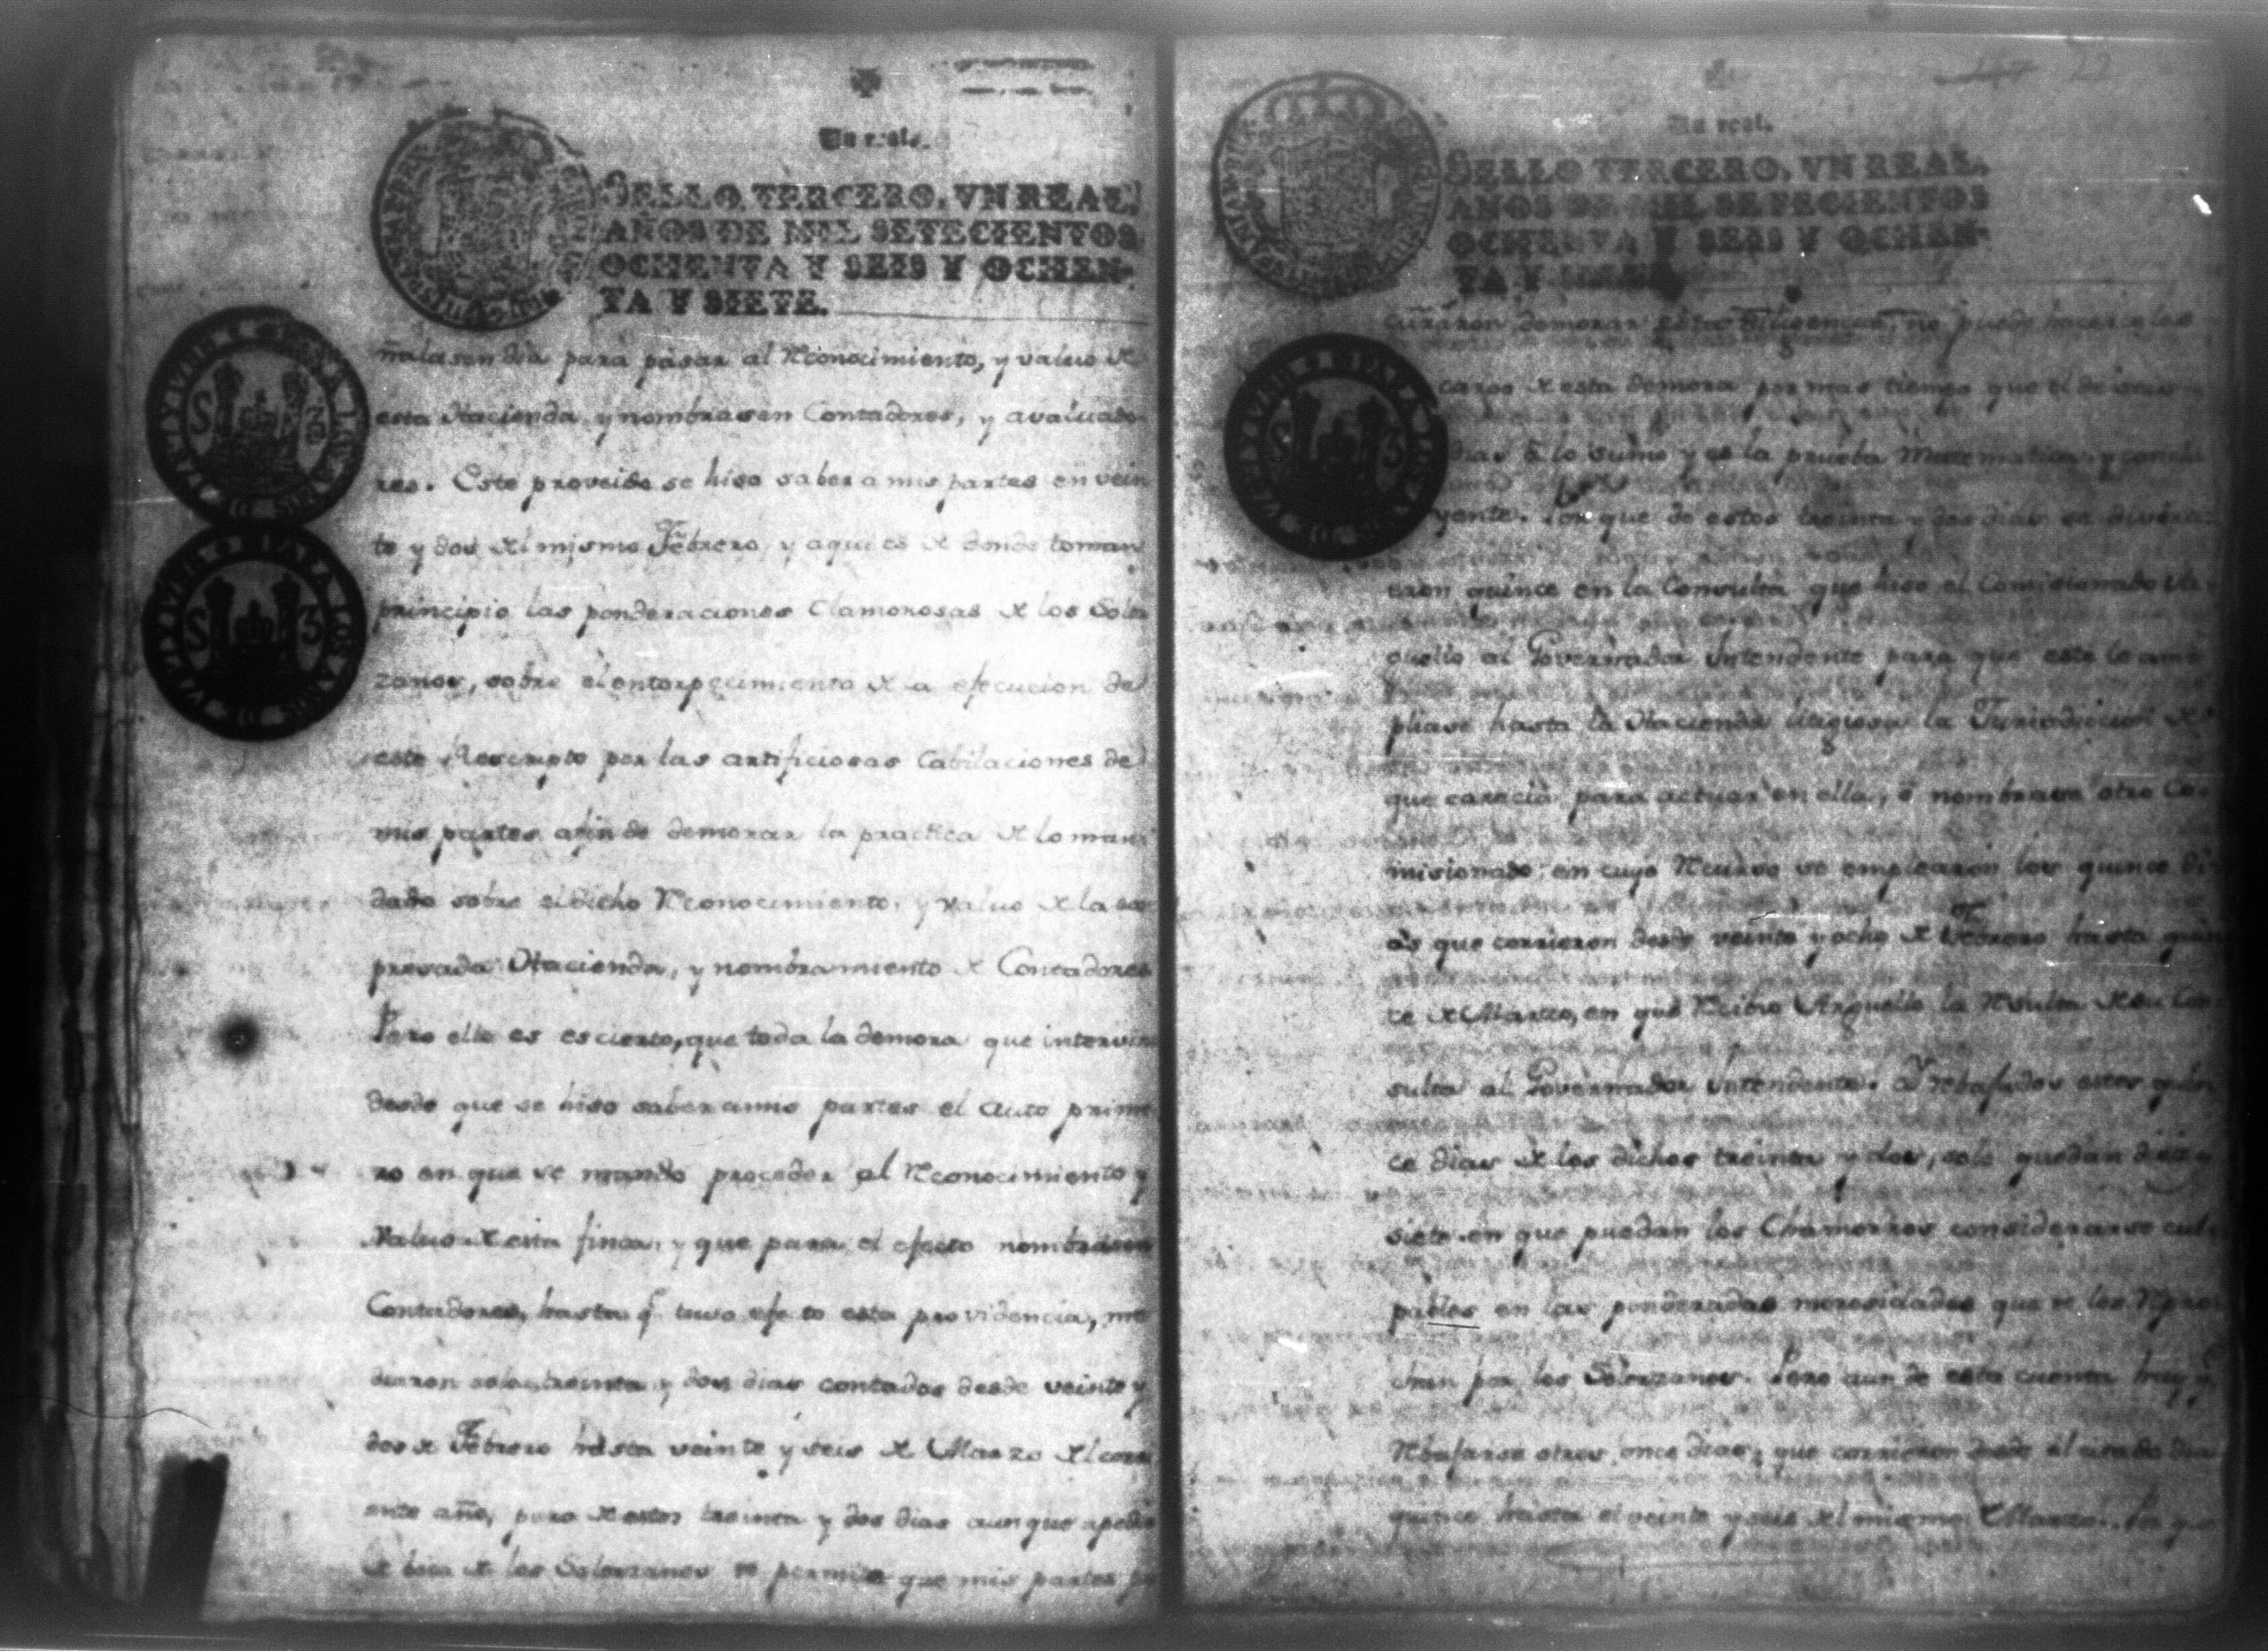 Un real.
SELLO TERCERO, VN REAL,
AÑOS DE MIL SETECIENTOS
OCHENTA Y SEIS Y OCHEN-
TA Y SIETE.
ñalasen dia para pasar al Reconocimiento, y valuo de
esta Hacienda, y nombrasen Contadores, y avaluado
res. Este proveido se hiso saber a mis partes en vein
te y dos del mismo Febrero, y aqui es de donde toman
principio las ponderaciones Clamorosas de los Solor
zanos, sobre el entorpecimiento de la efecucion de
este Rescripto por las artificiosas Cabilaciones de
mis partes afin de demorar la practica de lo man
dado sobre el dicho Reconocimiento, y valuo de la
presada Hacienda, y nombramiento de Contadores
Pero ello es es cierto, que toda la demora que intervino
desde que se hiso saber a mis partes el auto prime
ro en que se mando proceder al Reconocimiento y
Valuo de esta finca, y que para el efecto nombrasen
Contadores, hasta q.e tuvo efecto esta providencia, me
diaron solo treinta y dos dias contados desde veinte y
dos de Febrero hasta veinte y seis de Marzo del corri
ente año, pero de estos treinta y dos dias aunque a pedir
de boca de los Solorzanos se permita que mis partes pro
Un real.
SELLO TERCERO, VN REAL,
AÑOS DE MIL SETECIENTOS
OCHENTA Y SEIS Y OCHEN-
TA Y SIETE.
curaron demorar estas diligencias, no puede hacerseles
cargo de esta demora por mas tiempo que el de
dias á lo sumo y es la prueba Matematica, y conclu
yente. Por que de estos treinta y dos dias se divirti
eron quince en la Consulta que hiso el Comisionado Ar
guello al Governador Intendente para que este le am
pliase hasta la Hacienda litigiosa la Jurisdiccion de
que carecia para actuar en ella, ó nombrase otro Co
misionado; en cuyo Recurso se emplearon los quince di
as que corrieron desde veinte y ocho de Febrero hasta quin
ce de Marzo, en que Recibio Arguello la Resulta de su Con
sulta al Governador Intendente. Y Rebajados estos quin
ce dias de los dichos treinta y dos, solo quedan diez y
siete en que puedan los Chamorros considerarse cul
pables en las ponderadas morosidades que se les Repro
chan por los Solorzanos. Pero aun de esta cuenta hay q.e
Rebajarse otros once dias, que corrieron desde el citado dia
quince hasta el veinte y seis del mismo Marzo. Por que